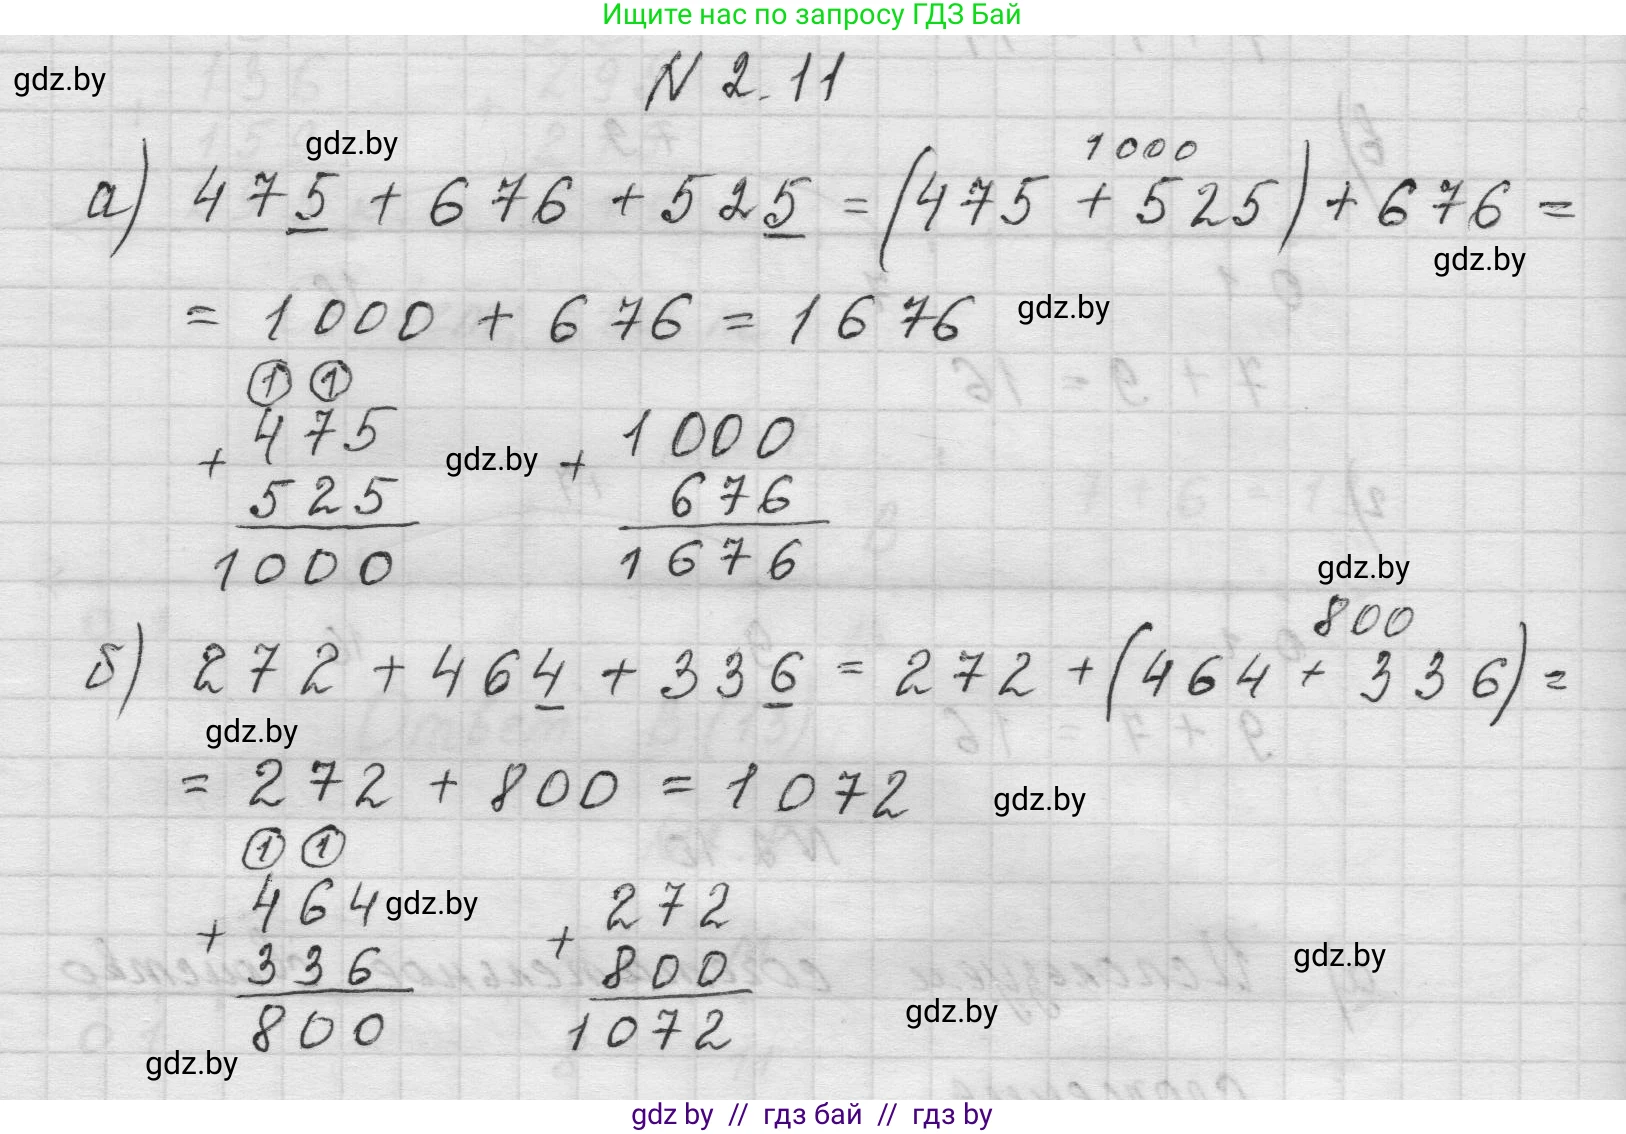 Ищите нас по запросу ГДЗ Бай
gdz.by
N 2.11
gdz.by
1000
а) 475 + 676 + 525 = (475 + 525) + 676 =
gdz.by
= 1000 + 676 = 1676
gdz.by
1 1
475
+
525
1000
gdz.by
1000
+
676
1676
gdz.by
800
б) 272 + 464 + 336 = 272 + (464 + 336) =
gdz.by
= 272 + 800 = 1072
gdz.by
1 1
464
+
336
800
gdz.by
272
+
800
1072
gdz.by
gdz.by
gdz.by
gdz by // гдз бай // гдз by